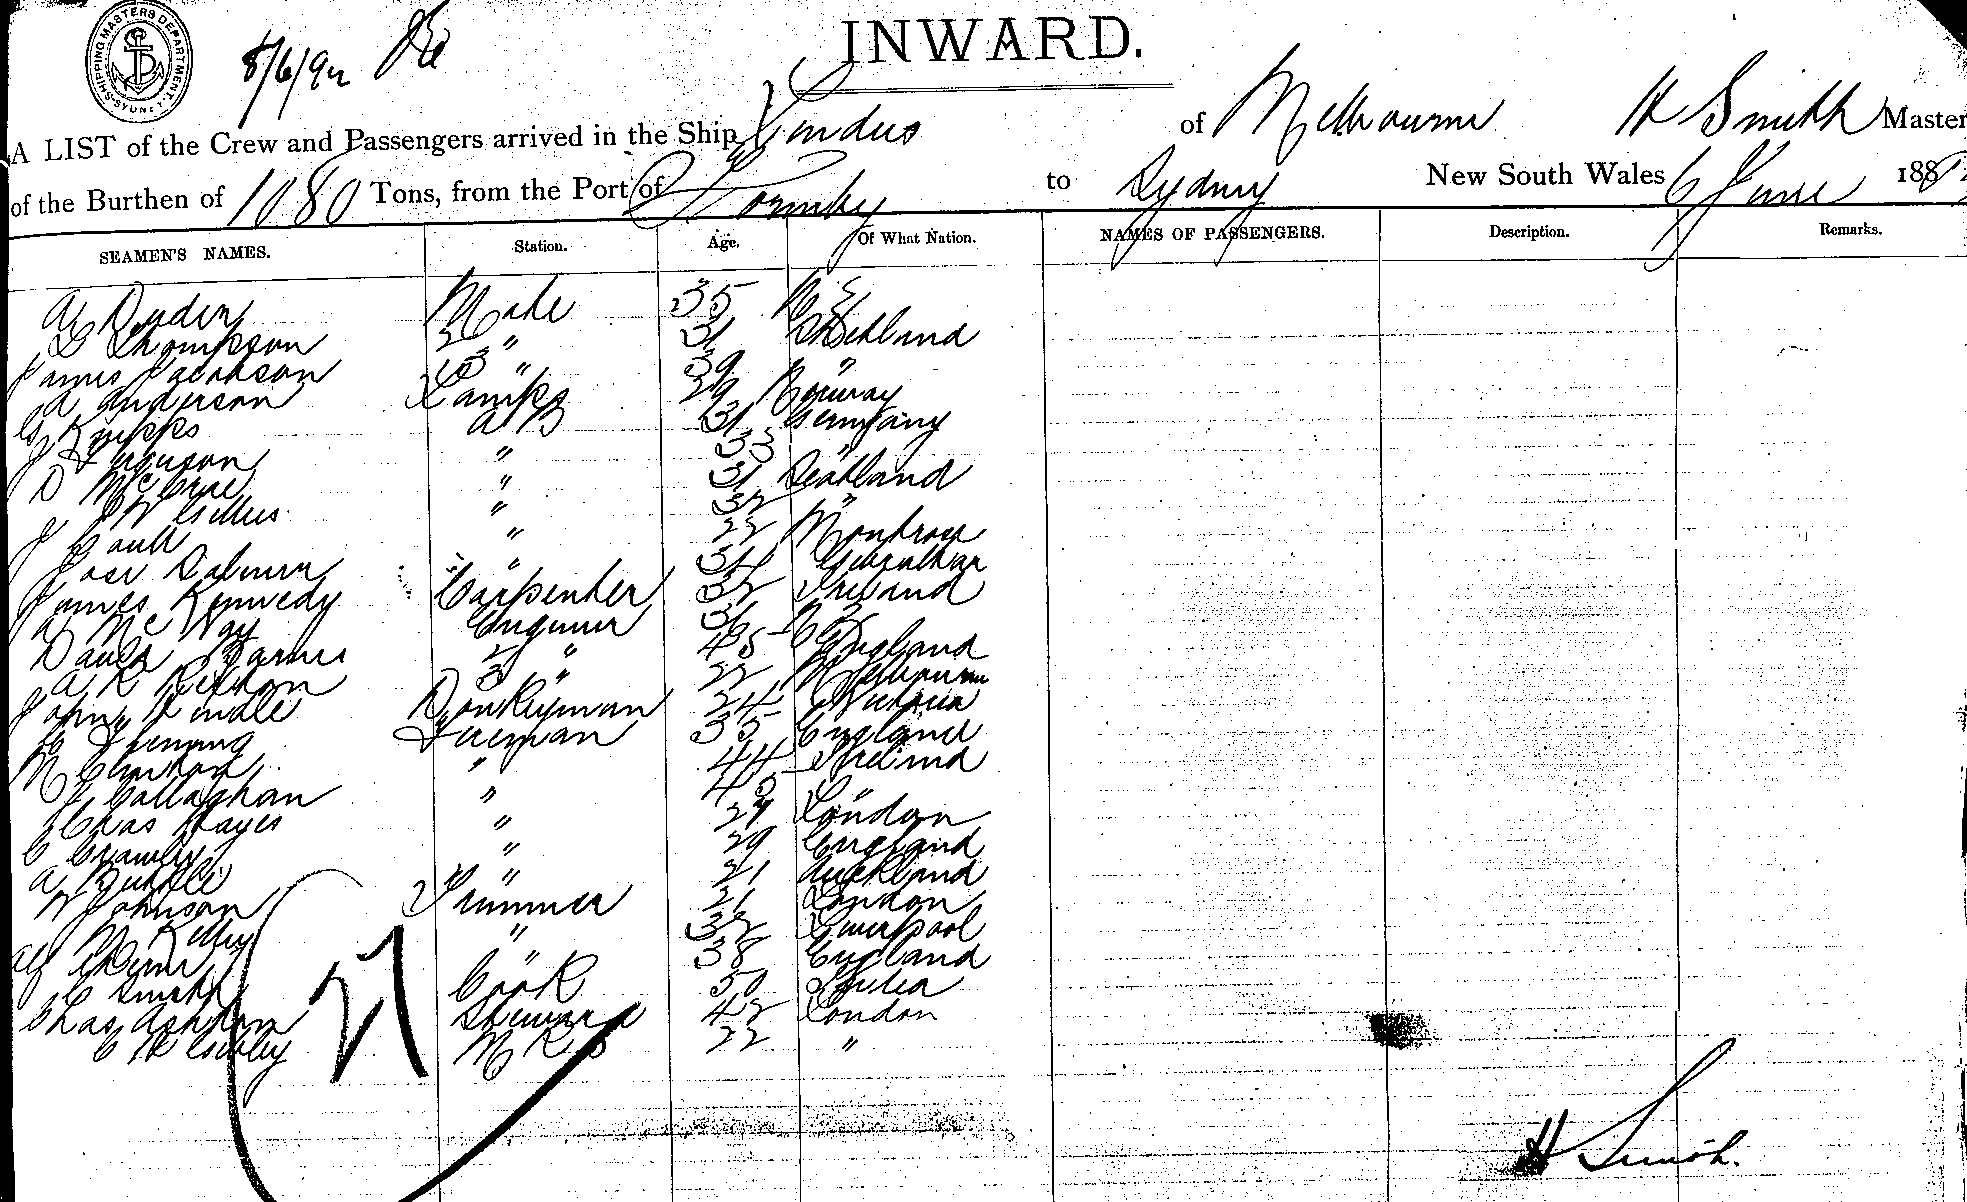 SHIPPING MASTERS DEPARTMENT. SYDNEY
8/6/92
INWARD.
A LIST of the Crew and Passengers arrived in the Ship Lindus of Melbourne H Smith Master
of the Burthen of 1080 Tons, from the Port of Formby to Sydney New South Wales 6 June 1892
SEAMEN'S NAMES. Station. Age. Of What Nation. NAMES OF PASSENGERS. Description. Remarks.
Mate 35
Thompson 2 " 31 Shetland
James Jacobson 3 " 39 "
A Anderson Lamps 29 Norway
G Knipps A B 31 Germany
J Ferguson " 33 "
D McCrae " 31 Scotland
J W " 32 "
J Gault " 22 Montrose
Jose " 34 Gibraltar
James Kennedy Carpenter 32 Ireland
A McKay Engineer 31
David Barnes 2 " 45 England
A R 3 " 22 Melbourne
John Donkeyman 24 Victoria
Fleming Fireman 35 England
M " 44 Ireland
Callaghan " 45 "
Chas Hayes " 27 London
C Crawley " 29 England
A " 21 Auckland
W Johnson Trimmer 21 London
M Kelly " 32 Liverpool
Alf " 38 England
C Smith Cook 50 India
Chas Ashton Steward 42 London
C H M R S 22 "
27
H Smith.